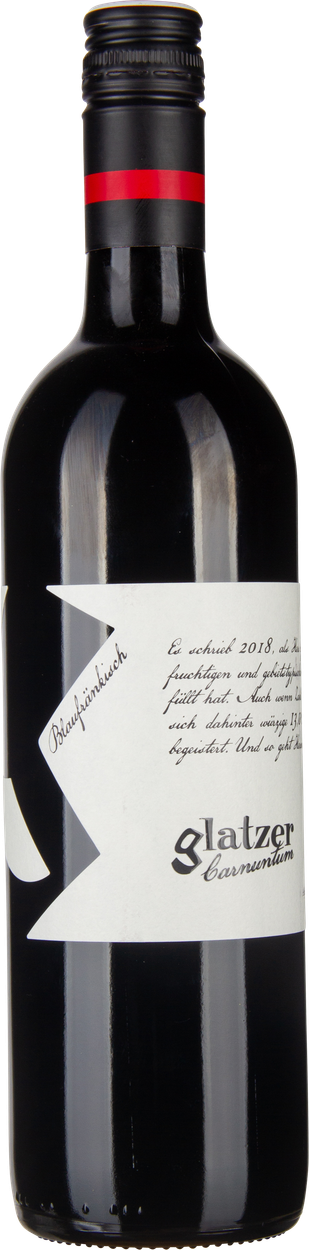 Blaufränkisch
Es schrieb 2018, als
fruchtigen und
füllt hat. Auch wenn
sich dahinter würzige 13,
begeistert. Und so geht
glatzer
Carnuntum